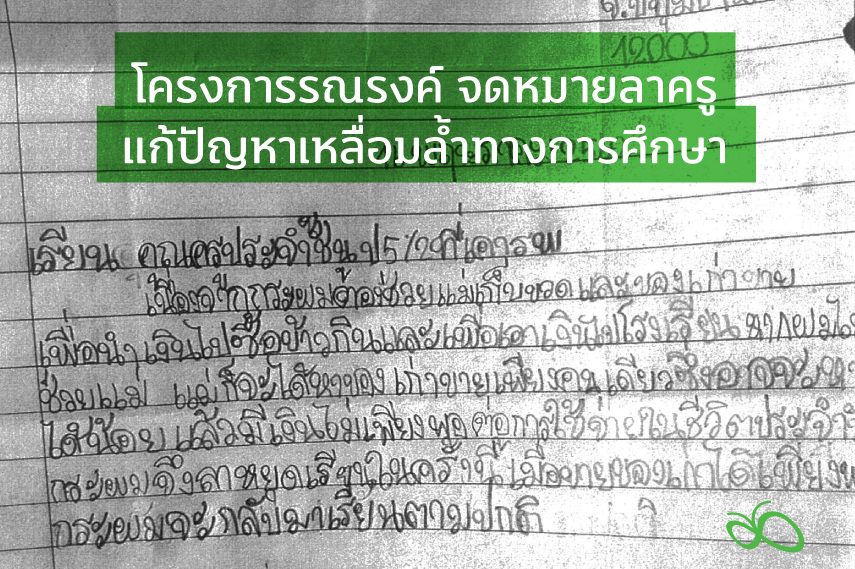 จ.ปทุมธานี
12000
โครงการรณรงค์ จดหมายลาครู
แก้ปัญหาเหลื่อมล้ำทางการศึกษา
เรียน คุณครูประจำชั้น ป 5/2 ที่เคารพ
เนื่องจากกระผมต้องช่วยแม่เก็บขวดและของเก่าขาย
เพื่อนำเงินไปซื้อข้าวกินและเพื่อเอาเงินไปโรงเรียน หากผมไม่
ช่วยแม่ แม่ก็จะได้หาของเก่าขายเพียงคนเดียวซึ่งอาจจะหา
ได้น้อย แล้วมีเงินไม่เพียงพอต่อการใช้จ่ายในชีวิตประจำ
กระผมจึงลาหยุดเรียนในครั้งนี้ เมื่อขายของเก่าได้เพียงพ
กระผมจะกลับมาเรียนตามปกติ